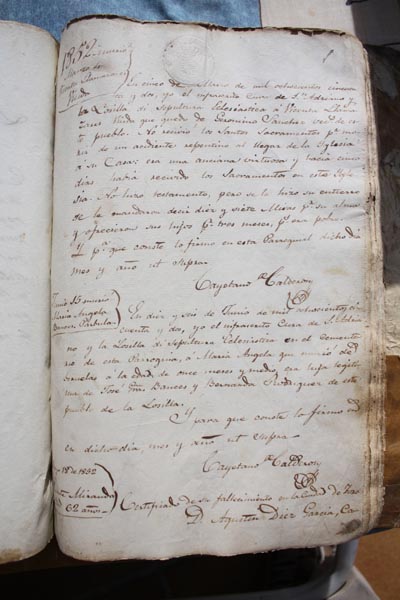 1852
Marzo 5
Viuda
En cinco de Marzo de mil ochocientos cincuen
ta y dos, yo el infraescrito Cura de Sn. Adriano y
la Losilla di Sepultura Eclesiástica a
Viuda que quedo de Geronimo Sanchez vecº de es
te pueblo. No recivio los Santos Sacramentos pr. mo
rir de un accidente repentino al llegar de la Iglesia
a su Casa: era una anciana virtuosa y hacia cinco
dias había recivido los Sacramentos en esta Igle
sia. No hizo testamento, pero se la hizo su entierro
se la mandaron decir diez y siete Misas pr. su alma
y ofrecieron sus hijos pr. tres meses, pr. era pobre.
Y pa. que conste lo firmo en esta Parroquia dicho dia
mes y año ut supra.
Cayetano Calderon
Junio 15 murio
Maria Angela
Bances Parbula
En diez y seis de Junio de mil ochocientos cin
cuenta y dos, yo el infraescrito Cura de S. Adria
no y la Losilla di Sepultura Eclesiastica en el Cemente
rio de esta Parroquia, á Maria Angela que murio de
viruelas á la edad de once meses y medio era hija legiti
ma de José Bances y Bernarda Rodriguez de este
pueblo de la Losilla. Y
para que conste lo firmo
en dicho dia, mes y año ut supra
Cayetano Calderon
de 1852
Miranda
62 años
Certificado de su fallecimiento en la
D. Agustin Diez Garcia,